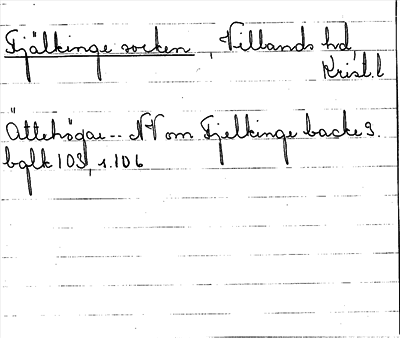 Fjälkinge socken, Villands hd,
Krist. l
Ättehögar -- NV om Fjelkinge backe 9.
bglk 103, 1.106